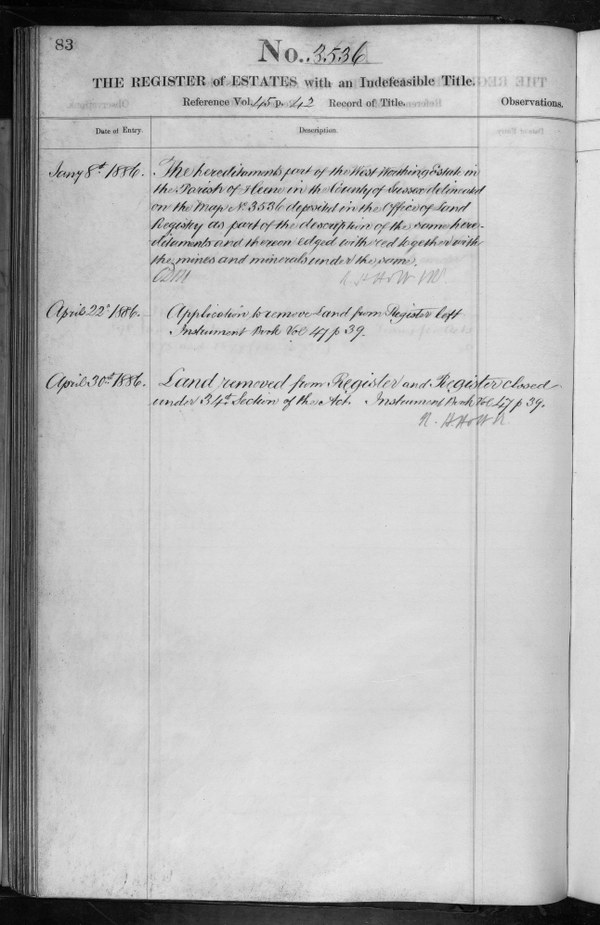 83
No. 3536
THE REGISTER of ESTATES with an Indefeasible Title.
Reference Vol. 45 p. 42 Record of Title.
Observations.
Date of Entry.
Description.
Jany 8th 1886.
The hereditaments part of the West Worthing Estate in
the Parish of Heene in the County of Sussex delineated
on the Map No 3536 deposited in the Office of Land
Registry as part of the description of the same here-
ditaments and thereon edged with red together with
the mines and minerals under the same.
April 22d 1886.
Application to remove Land from Register left
Instrument Book Vol 47 p 39.
April 30th 1886.
Land removed from Register and Register closed
under 34th Section of the Act. Instrument Book Vol 47 p 39.
R. H. Holt